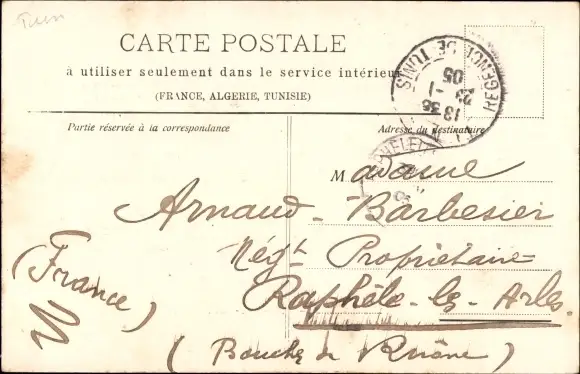 Tunis
CARTE POSTALE
à utiliser seulement dans le service intérieur
(FRANCE, ALGERIE, TUNISIE)
REGENCE DE TUNIS
13 35
23 -1
05
Partie réservée à la correspondance
Adresse du destinataire
Madame
Arnaud - Barbesier
Nég^t Propriétaire
Raphèle-les-Arles.
(France)
(Bouches du Rhône)